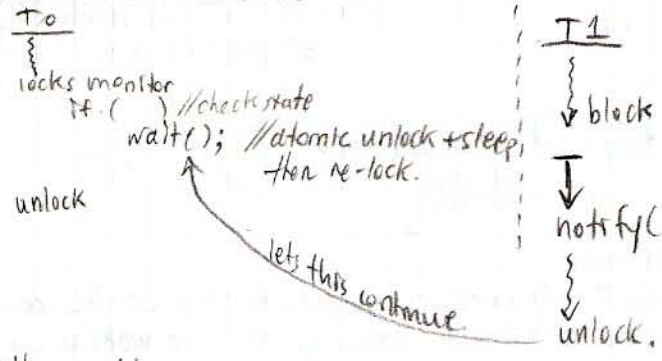 T0
locks monitor
if (     ) //check state
wait(); //atomic unlock + sleep,
then re-lock.
unlock
lets this continue
T1
block
notify(
unlock.